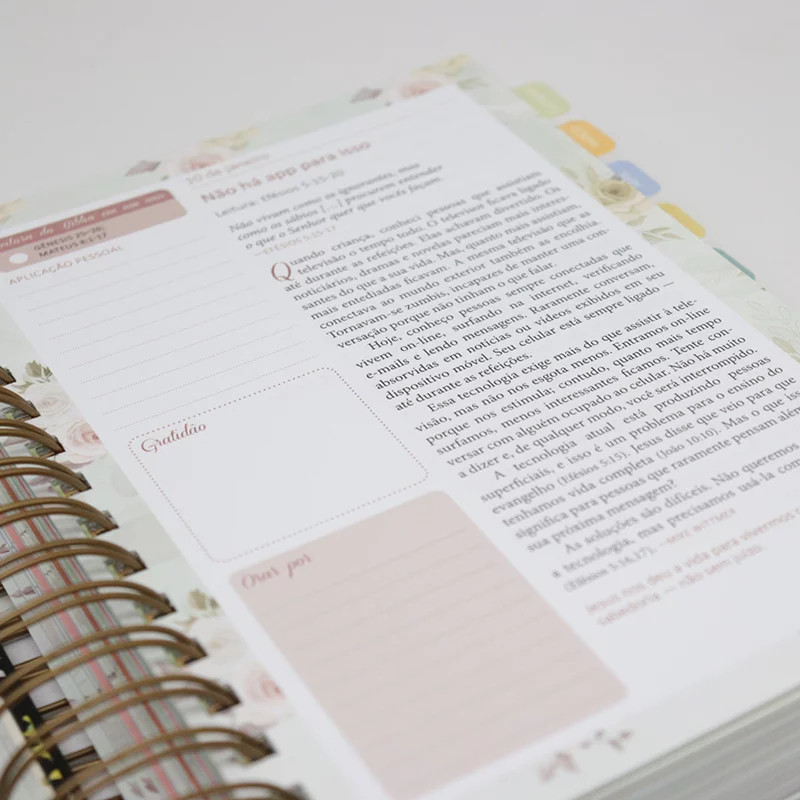 Leitura da Bíblia em um ano
GÊNESIS 25–26;
MATEUS 8:1-17
APLICAÇÃO PESSOAL
Gratidão
Orar por
10 de janeiro
Não há app para isso
Leitura: Efésios 5:15-20
Não vivam como os ignorantes, mas
como os sábios [...] procurem entender
o que o Senhor quer que vocês façam.
—EFÉSIOS 5:15-17
Quando criança, conheci pessoas que assistiam
televisão o tempo todo. O televisor ficava ligado
até durante as refeições. Elas achavam divertido. Os
noticiários, dramas e novelas pareciam mais interes-
santes do que a sua vida. Mas, quanto mais assistiam,
mais entediadas ficavam. A mesma televisão que as
conectava ao mundo exterior também as encolhia.
Tornavam-se zumbis, incapazes de manter uma con-
versação porque não tinham o que falar.
Hoje, conheço pessoas sempre conectadas que
vivem on-line, surfando na internet, verificando
e-mails e lendo mensagens. Raramente conversam,
absorvidas em notícias ou vídeos exibidos em seu
dispositivo móvel. Seu celular está sempre ligado —
até durante as refeições.
Essa tecnologia exige mais do que assistir à tele-
visão, mas não nos esgota menos. Entramos on-line
porque nos estimula; contudo, quanto mais tempo
surfamos, menos interessantes ficamos. Tente con-
versar com alguém ocupado ao celular. Não há muito
a dizer e, de qualquer modo, você será interrompido.
A tecnologia atual está produzindo pessoas
superficiais, e isso é um problema para o ensino do
evangelho (Efésios 5:15). Jesus disse que veio para que
tenhamos vida completa (João 10:10). Mas o que isso
significa para pessoas que raramente pensam além
sua próxima mensagem?
As soluções são difíceis. Não queremos
a tecnologia, mas precisamos usá-la com
(Efésios 5:16,17). —MIKE WITTMER
Jesus nos deu a vida para vivermos
sabedoria — não sem juízo.